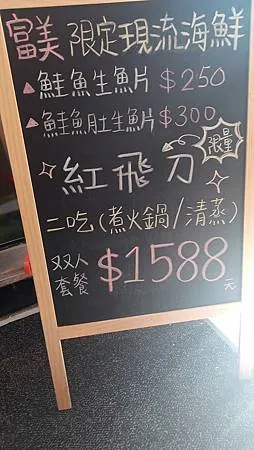 富美 限定現流海鮮
▲鮭魚生魚片 $250
▲鮭魚肚生魚片 $300
限量
紅飛刀
二吃(煮火鍋/清蒸)
双人套餐 $1588元